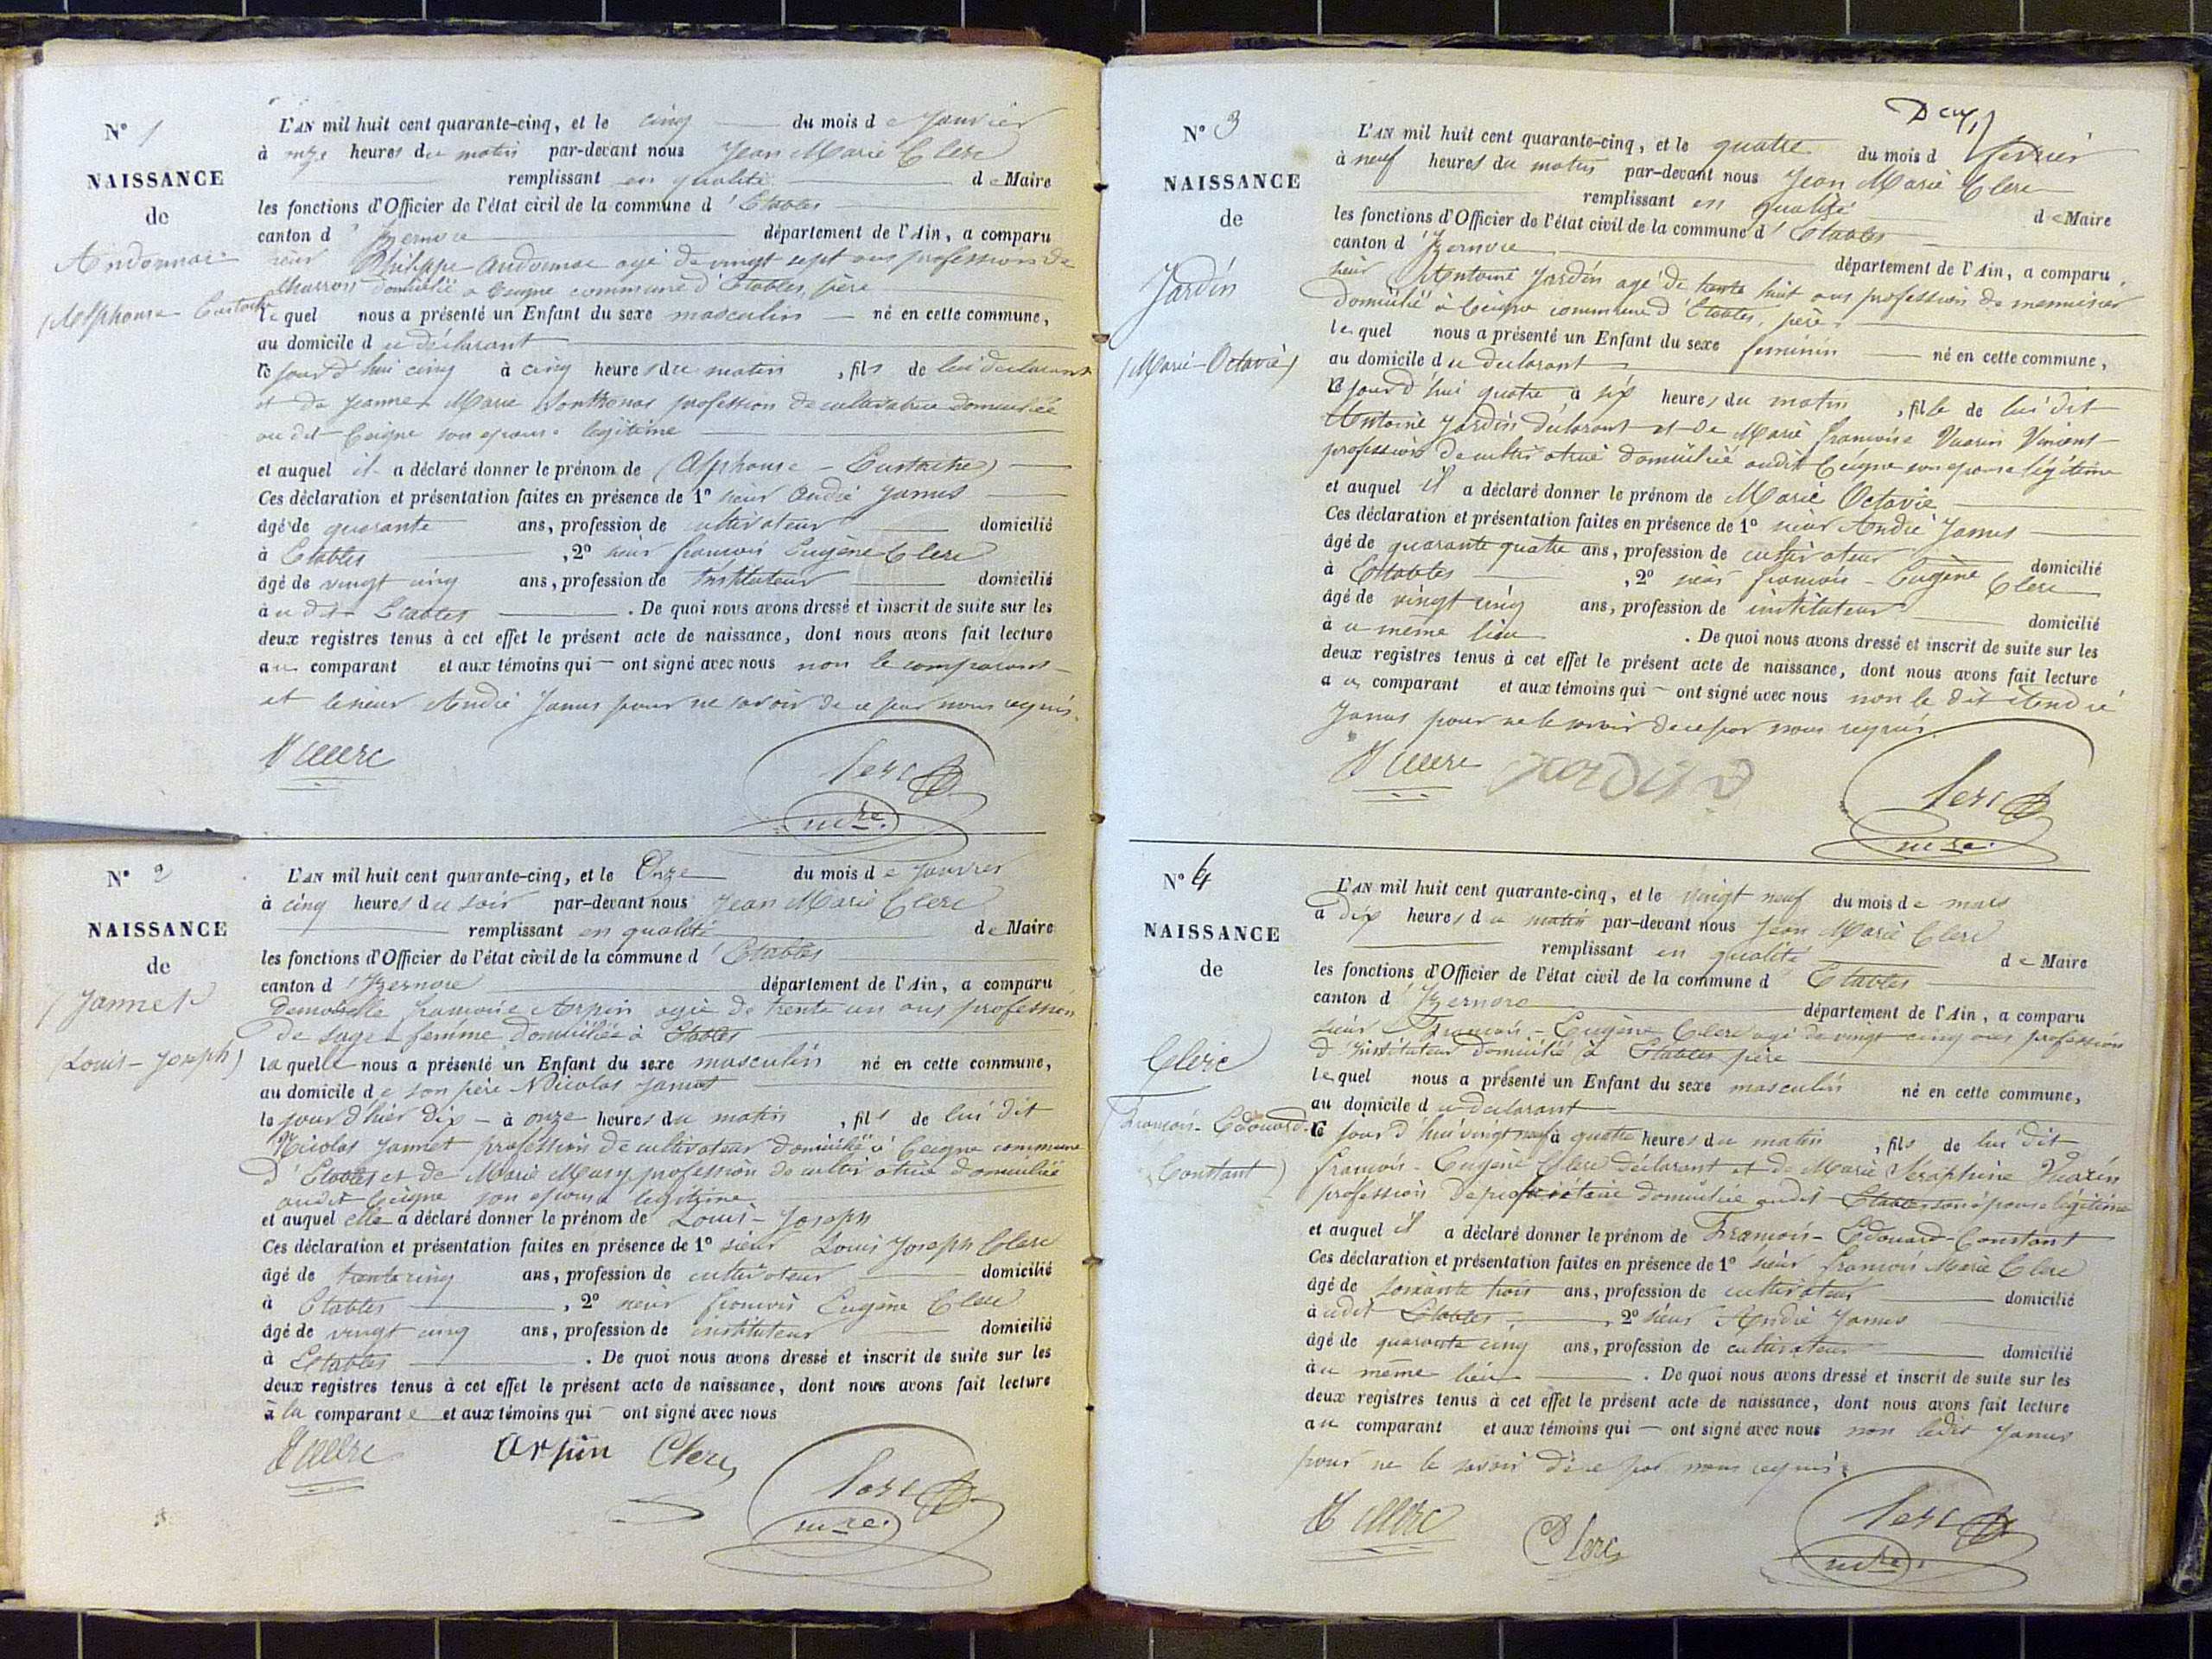 N° 1
NAISSANCE
de
Andonnac
(Alphonse-Eustache
L'AN mil huit cent quarante-cinq, et le cinq du mois de Janvier
à onze heures du matin par-devant nous Jean Marie Clerc
remplissant en qualité de Maire
les fonctions d'Officier de l'état civil de la commune d'Etables
canton d'Izernore département de l'Ain, a comparu
sieur Philippe Andonnac agé de vingt sept ans profession de
charron domicilié a Ceigne commune d'Etables, père
lequel nous a présenté un Enfant du sexe masculin né en cette commune,
au domicile du déclarant
ce jourd'hui cinq à cinq heures du matin, fils de lui déclarant
et de Jeanne Marie Sonthonax profession de cultivatrice domiciliée
au dit Ceigne son epouse legitime
et auquel il a déclaré donner le prénom de (Alphonse-Eustache)
Ces déclaration et présentation faites en présence de 1° sieur André Janus
âgé de quarante ans, profession de cultivateur domicilié
à Etables, 2° sieur françois Eugène Clerc
âgé de vingt cinq ans, profession de Instituteur domicilié
à u dit Etables. De quoi nous avons dressé et inscrit de suite sur les
deux registres tenus à cet effet le présent acte de naissance, dont nous avons fait lecture
au comparant et aux témoins qui ont signé avec nous non le comparant
et le sieur André Janus pour ne savoir de ce par nous requis.
Clerc
Clerc
mre.
N° 2
NAISSANCE
de
(Jannet
(Louis-Joseph)
L'AN mil huit cent quarante-cinq, et le Onze du mois de Janvier
à cinq heures du soir par-devant nous Jean Marie Clerc
remplissant en qualité de Maire
les fonctions d'Officier de l'état civil de la commune d'Etables
canton d'Izernore département de l'Ain, a comparu
Demoiselle françoise Arpin agée de trente un ans profession
de sage femme domiciliée à Etables
laquelle nous a présenté un Enfant du sexe masculin né en cette commune,
au domicile de son père Nicolas Jannet
le jour d'hier dix à onze heures du matin, fils de lui dit
Nicolas Jannet profession de cultivateur domicilié à Ceigne commune
d'Etables et de Marie Mary profession de cultivatrice domiciliée
audit Ceigne son epouse legitime
et auquel elle a déclaré donner le prénom de Louis-Joseph
Ces déclaration et présentation faites en présence de 1° sieur Louis Joseph Clerc
âgé de trente cinq ans, profession de cultivateur domicilié
à Etables, 2° sieur françois Eugène Clerc
âgé de vingt cinq ans, profession de instituteur domicilié
à Etables. De quoi nous avons dressé et inscrit de suite sur les
deux registres tenus à cet effet le présent acte de naissance, dont nous avons fait lecture
à la comparante et aux témoins qui ont signé avec nous
Clerc Arpin Clerc
Clerc
mre.
N° 3
NAISSANCE
de
Jardin
(Marie-Octavie)
L'AN mil huit cent quarante-cinq, et le quatre du mois d février
à neuf heures du matin par-devant nous Jean Marie Clerc
remplissant en qualité de Maire
les fonctions d'Officier de l'état civil de la commune d'Etables
canton d'Izernore département de l'Ain, a comparu
sieur Antoine Jardin agé de trente huit ans profession de menuisier
domicilié à Ceigne commune d'Etables, père
lequel nous a présenté un Enfant du sexe féminin né en cette commune,
au domicile du declarant
ce jourd'hui quatre à six heures du matin, fille de lui dit
Antoine Jardin déclarant et de Marie françoise Vuarin Vincent
profession de cultivatrice domiciliée audit Ceigne son epouse légitime
et auquel il a déclaré donner le prénom de Marie Octavie
Ces déclaration et présentation faites en présence de 1° sieur André Janus
âgé de quarante quatre ans, profession de cultivateur domicilié
à Etables, 2° sieur françois-Eugène Clerc
âgé de vingt cinq ans, profession de instituteur domicilié
à u meme lieu. De quoi nous avons dressé et inscrit de suite sur les
deux registres tenus à cet effet le présent acte de naissance, dont nous avons fait lecture
au comparant et aux témoins qui ont signé avec nous non le dit André
Janus pour ne le savoir de ce par nous requis.
Clerc Jardin
Clerc
mre.
N° 4
NAISSANCE
de
Clerc
(François-Edouard-
Constant)
L'AN mil huit cent quarante-cinq, et le vingt neuf du mois de mars
à dix heures du matin par-devant nous Jean Marie Clerc
remplissant en qualité de Maire
les fonctions d'Officier de l'état civil de la commune d'Etables
canton d'Izernore département de l'Ain, a comparu
sieur François-Eugène Clerc agé de vingt cinq ans profession
d'instituteur domicilié à Etables père
lequel nous a présenté un Enfant du sexe masculin né en cette commune,
au domicile du declarant
ce jour d'hui vingt neuf à quatre heures du matin, fils de lui dit
françois-Eugène Clerc déclarant et de Marie Séraphine Vuarin
profession de propriétaire domiciliée audit Etables son épouse légitime
et auquel il a déclaré donner le prénom de François-Edouard-Constant
Ces déclaration et présentation faites en présence de 1° sieur françois Marie Clerc
âgé de soixante trois ans, profession de cultivateur domicilié
à udit Etables, 2° sieur André Janus
âgé de quarante cinq ans, profession de cultivateur domicilié
àu même lieu. De quoi nous avons dressé et inscrit de suite sur les
deux registres tenus à cet effet le présent acte de naissance, dont nous avons fait lecture
au comparant et aux témoins qui ont signé avec nous non ledit Janus
pour ne le savoir de ce par nous requis.
Clerc Clerc
Clerc
mre.